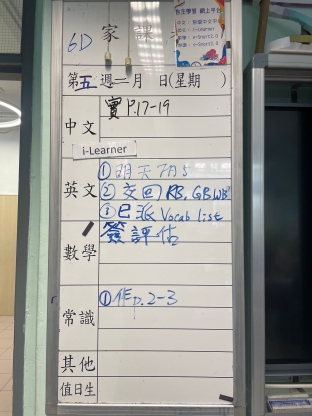 6D 家課
自主學習 網上平台
第五週二月 日(星期 )
中文 實 P.17-19
i-Learner
英文 ①明天
②交回 RB, GB, WB
③已派 Vocab list
數學 簽評估
常識 ①作p.2-3
其他
值日生